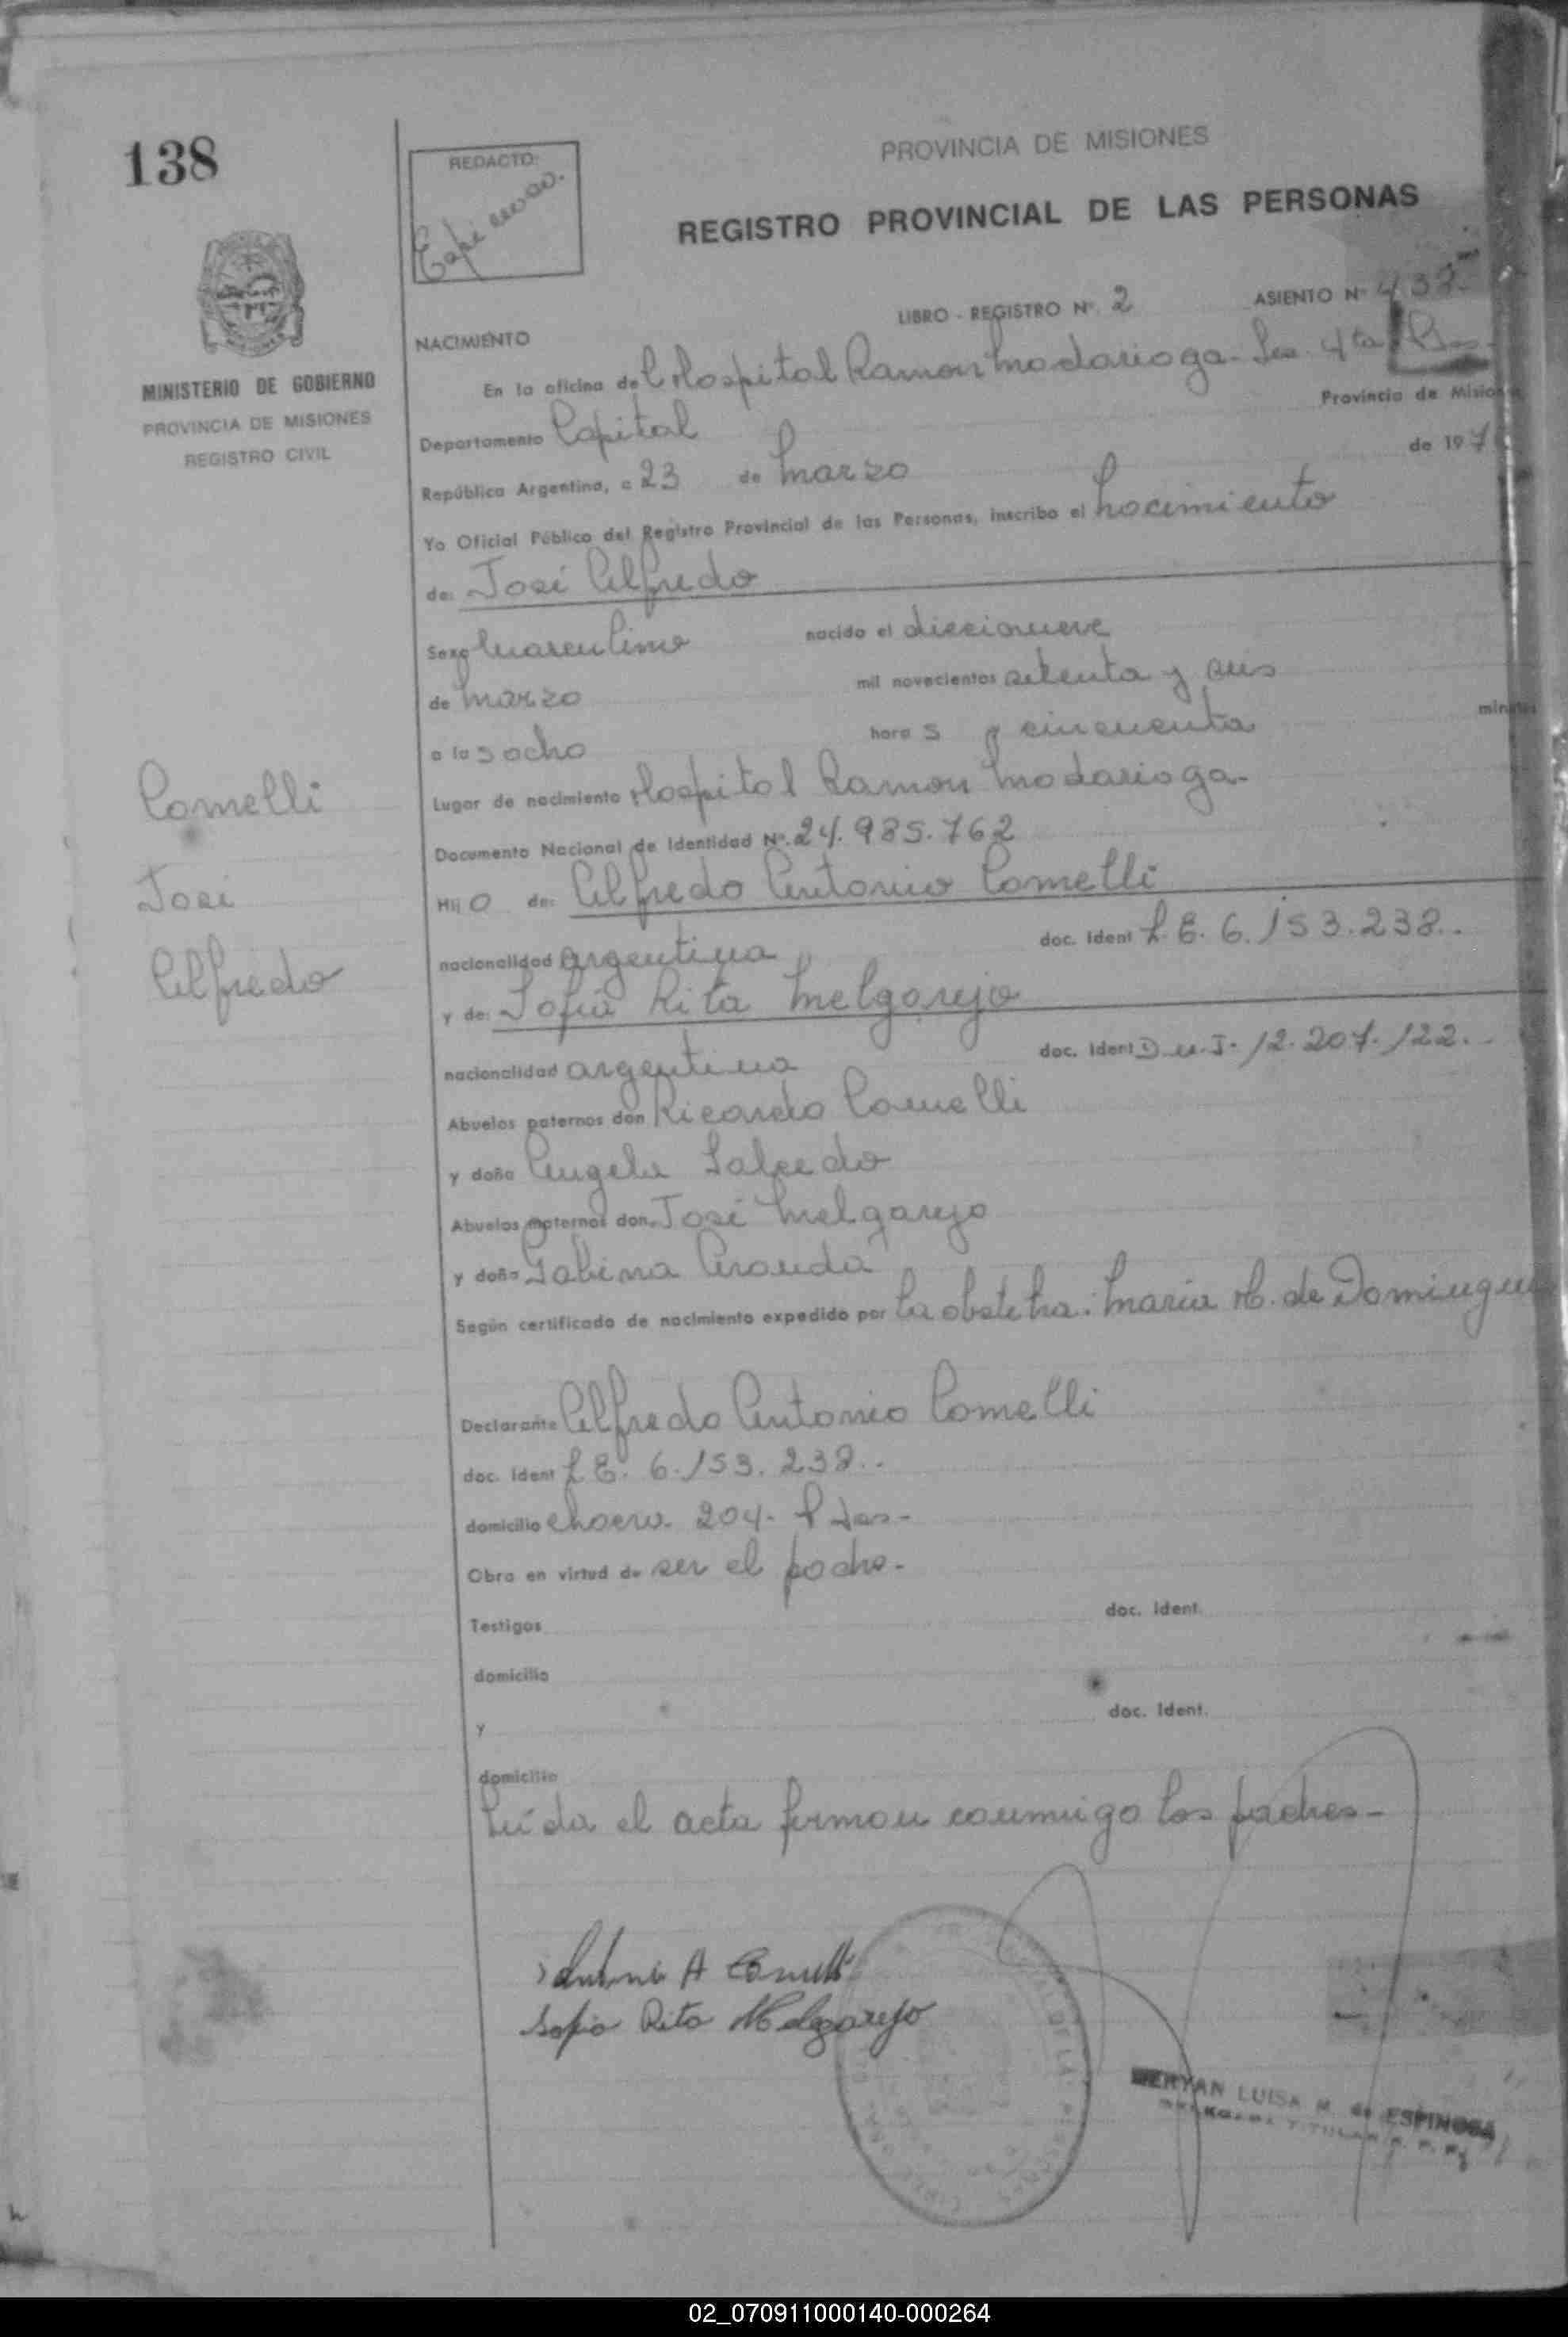 138
REDACTO:
PROVINCIA DE MISIONES
REGISTRO PROVINCIAL DE LAS PERSONAS
MINISTERIO DE GOBIERNO
PROVINCIA DE MISIONES
REGISTRO CIVIL
LIBRO - REGISTRO Nº. 2 ASIENTO Nº 438
NACIMIENTO
En la oficina del Hospital Ramon Madariaga - Sec. 4ta
Departamento Capital Provincia de Misiones
República Argentina, a 23 de Marzo de 197
Yo Oficial Público del Registro Provincial de las Personas, inscribo el nacimiento
de: José Alfredo
Sexo masculino nacido el diecinueve
de marzo mil novecientos setenta y seis
a las ocho horas y cincuenta minutos
Lugar de nacimiento Hospital Ramon Madariaga-
Documento Nacional de Identidad Nº. 24.985.762
Hijo de: Alfredo Antonio Comelli
nacionalidad argentina doc. Ident L.E. 6.153.238..
y de: Sofia Rita Melgarejo
nacionalidad argentina doc. Ident D.N.I. 12.207.122.-
Abuelos paternos don Ricardo Comelli
y doña Angela Salcedo
Abuelos maternos don. José Melgarejo
y doña Sabina Aranda
Según certificado de nacimiento expedido por la obstetra: Maria H. de Domingue
Declarante Alfredo Antonio Comelli
doc. Ident L.E. 6.153.238..
domicilio chacra. 204- Pdas-
Obra en virtud de ser el padre-
Testigos doc. Ident.
domicilio
y doc. Ident.
domicilio
Leída el acta firman conmigo los padres-
Comelli
José
Alfredo
Antonio A Comelli
Sofia Rita Melgarejo
MERYAN LUISA M. de ESPINOSA
02_070911000140-000264